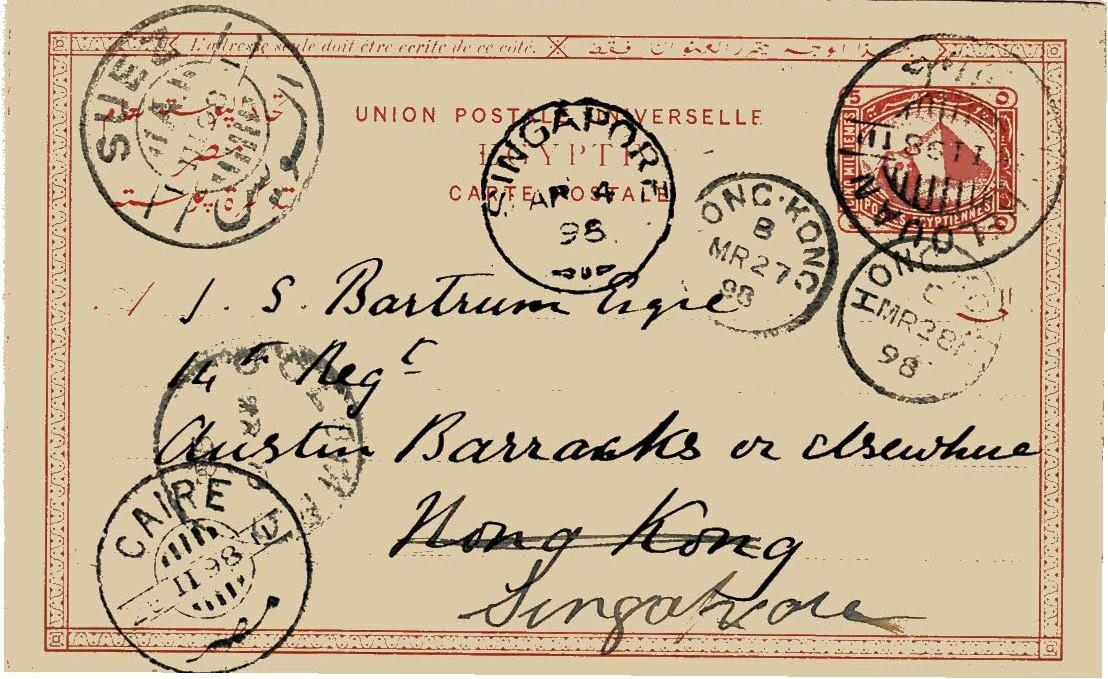 L'adresse seule doit être écrite de ce côté.
UNION POSTALE UNIVERSELLE
EGYPTE
CARTE POSTALE
SUEZ
السويس
SINGAPORE
AP 4
98
HONG·KONG
B
MR 27
98
HONG KONG
C
MR 28
98
5
CINQ MILLIEMES
POSTES EGYPTIENNES
J. S. Bartrum Esqre
14th Regt
Austin Barracks or elsewhere
Hong Kong
Singapore
CAIRE
II 98